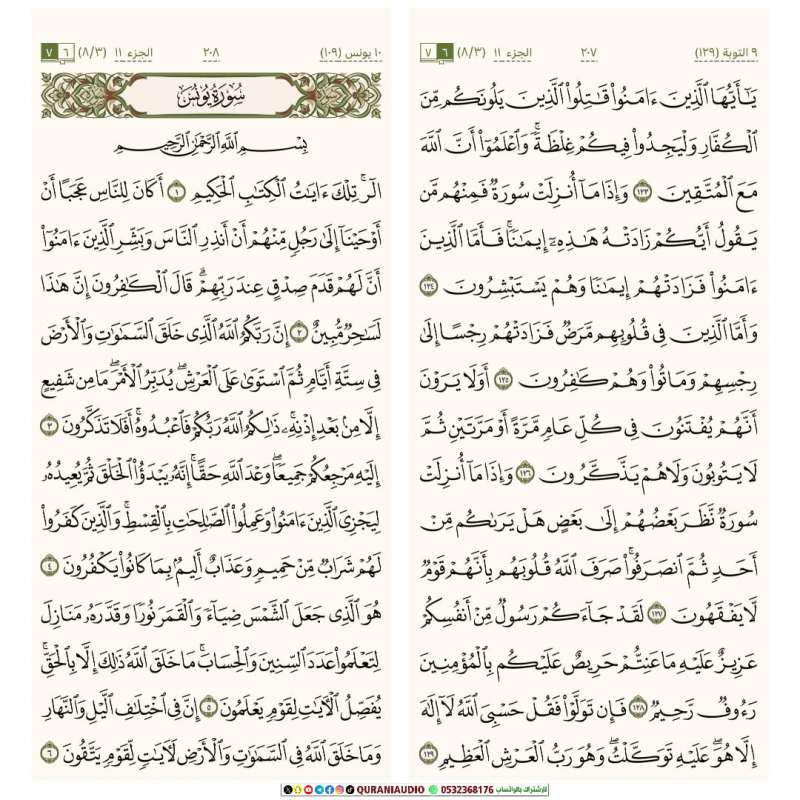 ٩ التوبة (١٢٩) ٢٠٧ الجزء ١١ (٨/٣) ٦ ٧
يَـٰٓأَيُّهَا ٱلَّذِينَ ءَامَنُوا۟ قَـٰتِلُوا۟ ٱلَّذِينَ يَلُونَكُم مِّنَ
ٱلْكُفَّارِ وَلْيَجِدُوا۟ فِيكُمْ غِلْظَةً ۚ وَٱعْلَمُوٓا۟ أَنَّ ٱللَّهَ
مَعَ ٱلْمُتَّقِينَ ١٢٣ وَإِذَا مَآ أُنزِلَتْ سُورَةٌ فَمِنْهُم مَّن
يَقُولُ أَيُّكُمْ زَادَتْهُ هَـٰذِهِۦٓ إِيمَـٰنًا ۚ فَأَمَّا ٱلَّذِينَ
ءَامَنُوا۟ فَزَادَتْهُمْ إِيمَـٰنًا وَهُمْ يَسْتَبْشِرُونَ ١٢٤
وَأَمَّا ٱلَّذِينَ فِى قُلُوبِهِم مَّرَضٌ فَزَادَتْهُمْ رِجْسًا إِلَىٰ
رِجْسِهِمْ وَمَاتُوا۟ وَهُمْ كَـٰفِرُونَ ١٢٥ أَوَلَا يَرَوْنَ
أَنَّهُمْ يُفْتَنُونَ فِى كُلِّ عَامٍ مَّرَّةً أَوْ مَرَّتَيْنِ ثُمَّ
لَا يَتُوبُونَ وَلَا هُمْ يَذَّكَّرُونَ ١٢٦ وَإِذَا مَآ أُنزِلَتْ
سُورَةٌ نَّظَرَ بَعْضُهُمْ إِلَىٰ بَعْضٍ هَلْ يَرَىٰكُم مِّنْ
أَحَدٍ ثُمَّ ٱنصَرَفُوا۟ ۚ صَرَفَ ٱللَّهُ قُلُوبَهُم بِأَنَّهُمْ قَوْمٌ
لَّا يَفْقَهُونَ ١٢٧ لَقَدْ جَآءَكُمْ رَسُولٌ مِّنْ أَنفُسِكُمْ
عَزِيزٌ عَلَيْهِ مَا عَنِتُّمْ حَرِيصٌ عَلَيْكُم بِٱلْمُؤْمِنِينَ
رَءُوفٌ رَّحِيمٌ ١٢٨ فَإِن تَوَلَّوْا۟ فَقُلْ حَسْبِىَ ٱللَّهُ لَآ إِلَـٰهَ
إِلَّا هُوَ ۖ عَلَيْهِ تَوَكَّلْتُ ۖ وَهُوَ رَبُّ ٱلْعَرْشِ ٱلْعَظِيمِ ١٢٩
١٠ يونس (١٠٩) ٢٠٨ الجزء ١١ (٨/٣) ٦ ٧
سُورَةُ يُونُسَ
بِسْمِ ٱللَّهِ ٱلرَّحْمَـٰنِ ٱلرَّحِيمِ
الٓر ۚ تِلْكَ ءَايَـٰتُ ٱلْكِتَـٰبِ ٱلْحَكِيمِ ١ أَكَانَ لِلنَّاسِ عَجَبًا أَنْ
أَوْحَيْنَآ إِلَىٰ رَجُلٍ مِّنْهُمْ أَنْ أَنذِرِ ٱلنَّاسَ وَبَشِّرِ ٱلَّذِينَ ءَامَنُوٓا۟
أَنَّ لَهُمْ قَدَمَ صِدْقٍ عِندَ رَبِّهِمْ ۗ قَالَ ٱلْكَـٰفِرُونَ إِنَّ هَـٰذَا
لَسَـٰحِرٌ مُّبِينٌ ٢ إِنَّ رَبَّكُمُ ٱللَّهُ ٱلَّذِى خَلَقَ ٱلسَّمَـٰوَٰتِ وَٱلْأَرْضَ
فِى سِتَّةِ أَيَّامٍ ثُمَّ ٱسْتَوَىٰ عَلَى ٱلْعَرْشِ ۖ يُدَبِّرُ ٱلْأَمْرَ ۖ مَا مِن شَفِيعٍ
إِلَّا مِنۢ بَعْدِ إِذْنِهِۦ ۚ ذَٰلِكُمُ ٱللَّهُ رَبُّكُمْ فَٱعْبُدُوهُ ۚ أَفَلَا تَذَكَّرُونَ ٣
إِلَيْهِ مَرْجِعُكُمْ جَمِيعًا ۖ وَعْدَ ٱللَّهِ حَقًّا ۚ إِنَّهُۥ يَبْدَؤُا۟ ٱلْخَلْقَ ثُمَّ يُعِيدُهُۥ
لِيَجْزِىَ ٱلَّذِينَ ءَامَنُوا۟ وَعَمِلُوا۟ ٱلصَّـٰلِحَـٰتِ بِٱلْقِسْطِ ۚ وَٱلَّذِينَ كَفَرُوا۟
لَهُمْ شَرَابٌ مِّنْ حَمِيمٍ وَعَذَابٌ أَلِيمٌۢ بِمَا كَانُوا۟ يَكْفُرُونَ ٤
هُوَ ٱلَّذِى جَعَلَ ٱلشَّمْسَ ضِيَآءً وَٱلْقَمَرَ نُورًا وَقَدَّرَهُۥ مَنَازِلَ
لِتَعْلَمُوا۟ عَدَدَ ٱلسِّنِينَ وَٱلْحِسَابَ ۚ مَا خَلَقَ ٱللَّهُ ذَٰلِكَ إِلَّا بِٱلْحَقِّ ۚ
يُفَصِّلُ ٱلْـَٔايَـٰتِ لِقَوْمٍ يَعْلَمُونَ ٥ إِنَّ فِى ٱخْتِلَـٰفِ ٱلَّيْلِ وَٱلنَّهَارِ
وَمَا خَلَقَ ٱللَّهُ فِى ٱلسَّمَـٰوَٰتِ وَٱلْأَرْضِ لَـَٔايَـٰتٍ لِّقَوْمٍ يَتَّقُونَ ٦
QURANIAUDIO 0532368176 للإشتراك بالواتساب